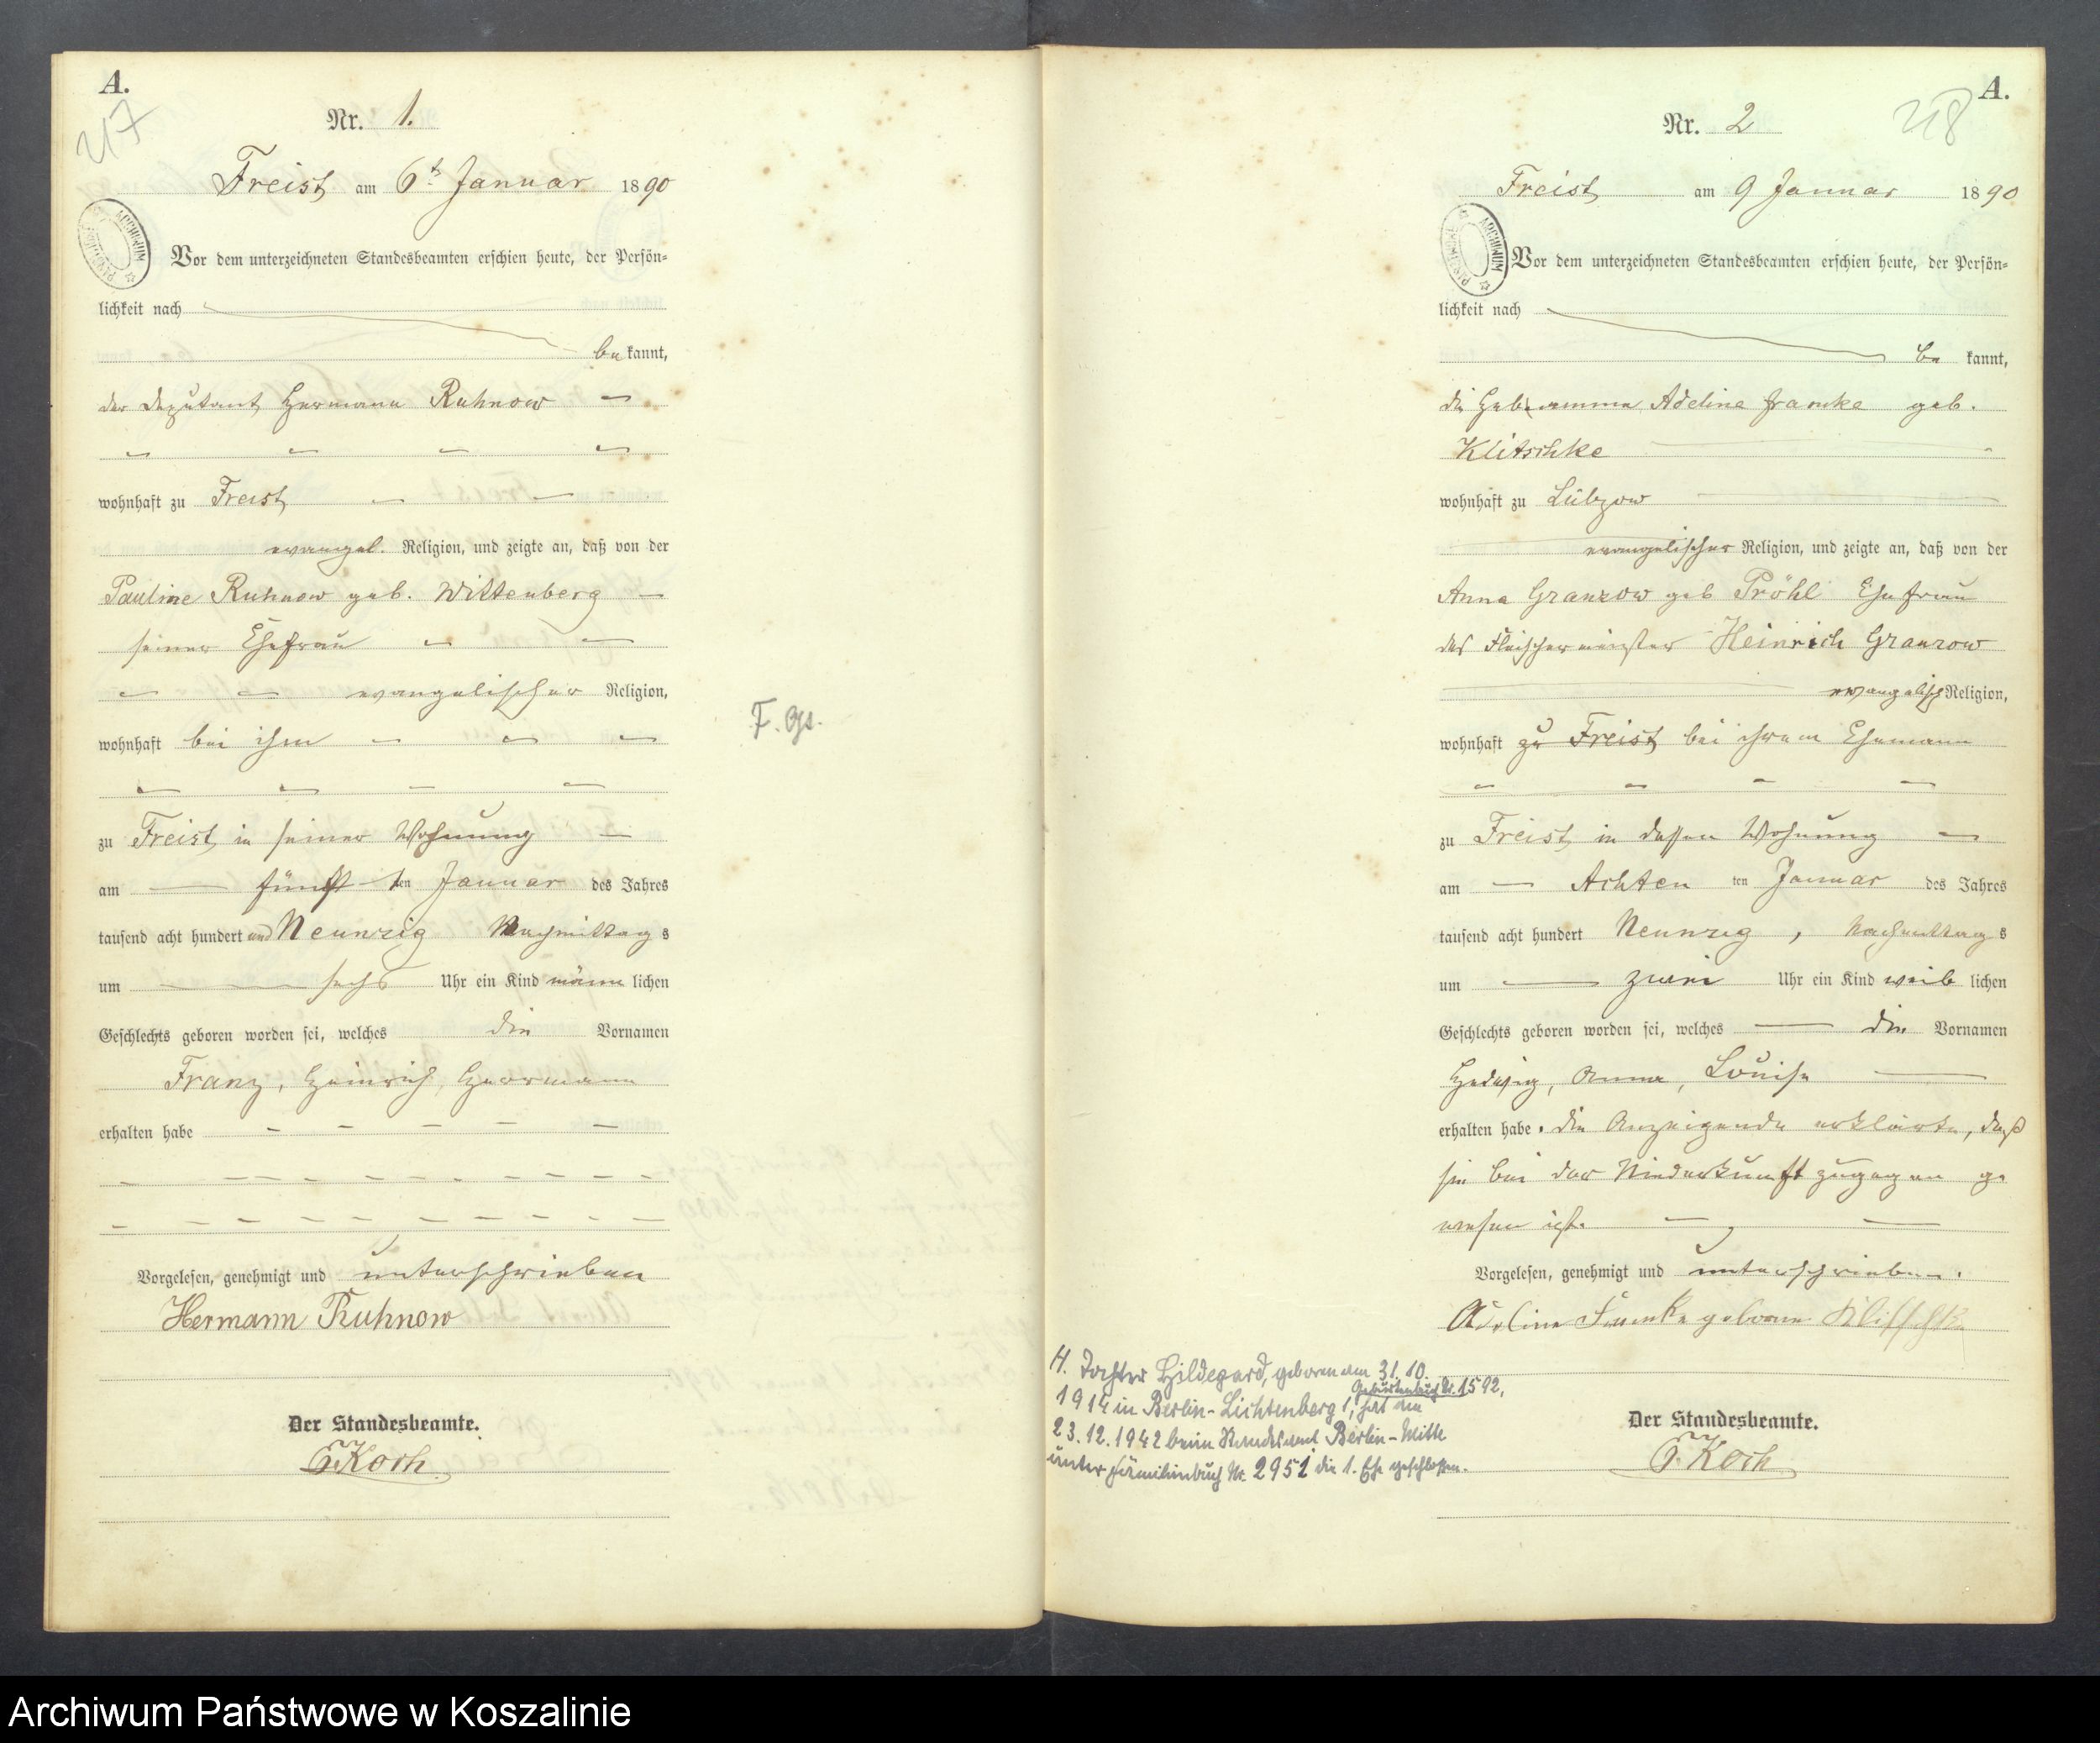 A.
217
Nr. 1.
Freist am 6ten Januar 1890
ARCHIWUM
Vor dem unterzeichneten Standesbeamten erschien heute, der Persön-
lichkeit nach
be kannt,
der Deputant Hermann Ruhnow
wohnhaft zu Freist
evangel. Religion, und zeigte an, daß von der
Pauline Ruhnow geb. Wittenberg
seiner Ehefrau
evangelischer Religion,
wohnhaft bei ihm
zu Freist in seiner Wohnung
am fünften Januar des Jahres
tausend acht hundert und Neunzig Nachmittags
um sechs Uhr ein Kind männlichen
Geschlechts geboren worden sei, welches die Vornamen
Franz, Heinrich, Herrmann
erhalten habe
Vorgelesen, genehmigt und unterschrieben
Hermann Ruhnow
Der Standesbeamte.
Koch
F. Gs.
A.
218
Nr. 2
Freist am 9 Januar 1890
ARCHIWUM
Vor dem unterzeichneten Standesbeamten erschien heute, der Persön-
lichkeit nach
be kannt,
die Hebeamme Adeline Franke geb.
Klitschke
wohnhaft zu Lübzow
evangelischer Religion, und zeigte an, daß von der
Anna Granzow geb Pröhl Ehefrau
des Fleischermeister Heinrich Granzow
evangelisch Religion,
wohnhaft zu Freist bei ihrem Ehemann
zu Freist in dessen Wohnung
am Achten ten Januar des Jahres
tausend acht hundert Neunzig, Nachmittags
um zwei Uhr ein Kind weiblichen
Geschlechts geboren worden sei, welches die Vornamen
Hedwig, Anna, Louise
erhalten habe. die Anzeigende erklärte, daß
sie bei der Niederkunft zugegen ge
wesen ist.
Vorgelesen, genehmigt und unterschrieben.
Adeline Franke geborne Klitschke
H. Tochter Hildegard, geboren am 31.10.
1914 in Berlin-Lichtenberg 1, Geburtenbuch Nr. 1592, hat am
23.12.1942 beim Standesamt Berlin-Mitte
unter Familienbuch Nr. 2951 die 1. Ehe geschlossen.
Der Standesbeamte.
Koch
Archiwum Państwowe w Koszalinie